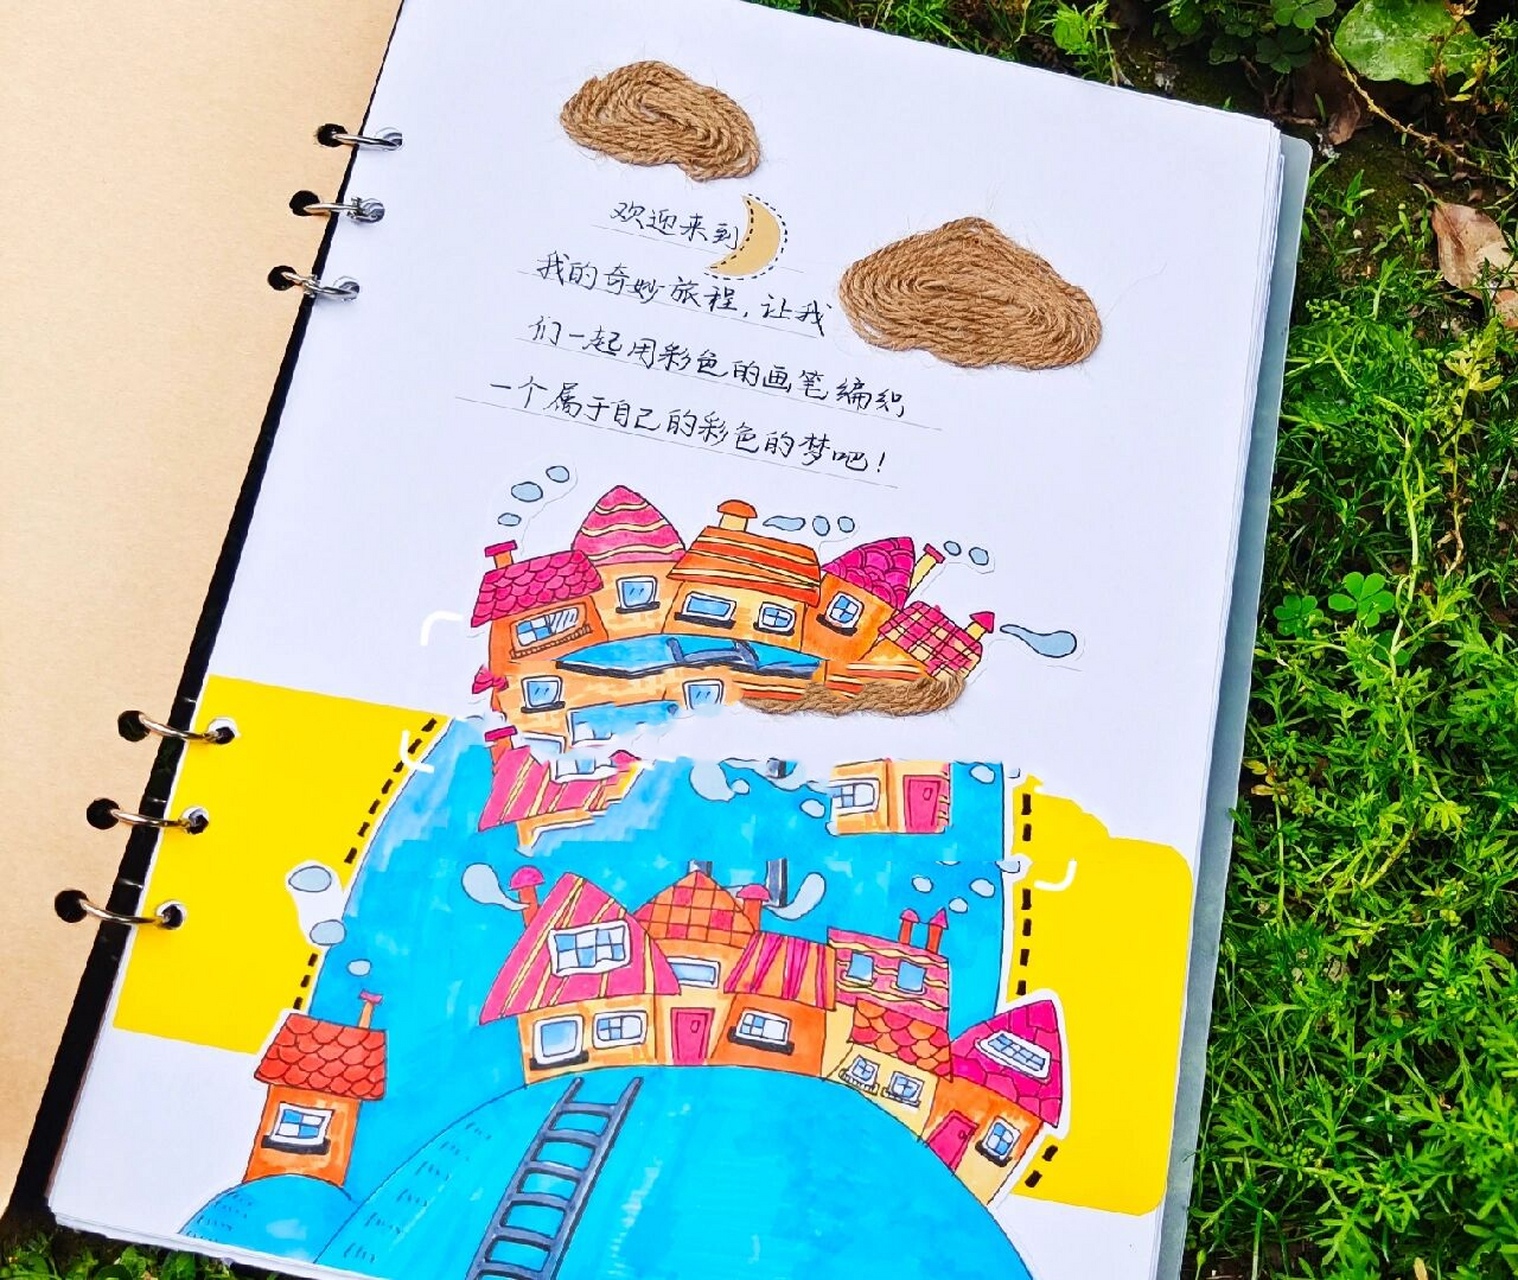 欢迎来到
我的奇妙旅程，让我
们一起用彩色的画笔编织
一个属于自己的彩色的梦吧！